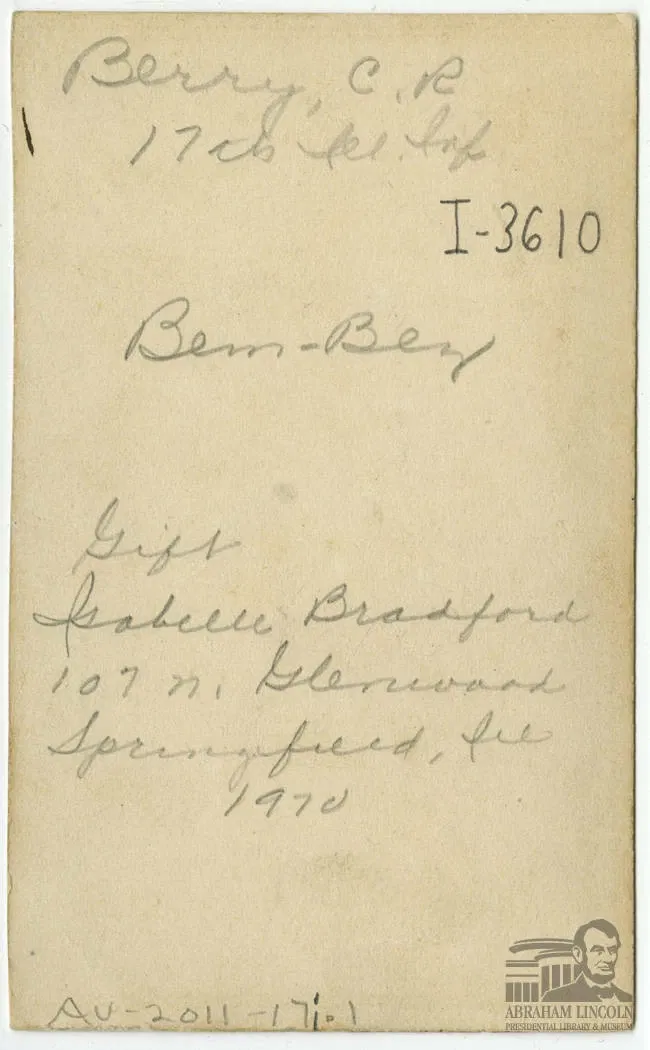 Berry, C. R
17th Ill. Inf
I-3610
Bem-Bey
Gift
Isabelle Bradford
107 N. Glenwood
Springfield, Ill
1970
AV-2011-17i.1
ABRAHAM LINCOLN
PRESIDENTIAL LIBRARY & MUSEUM